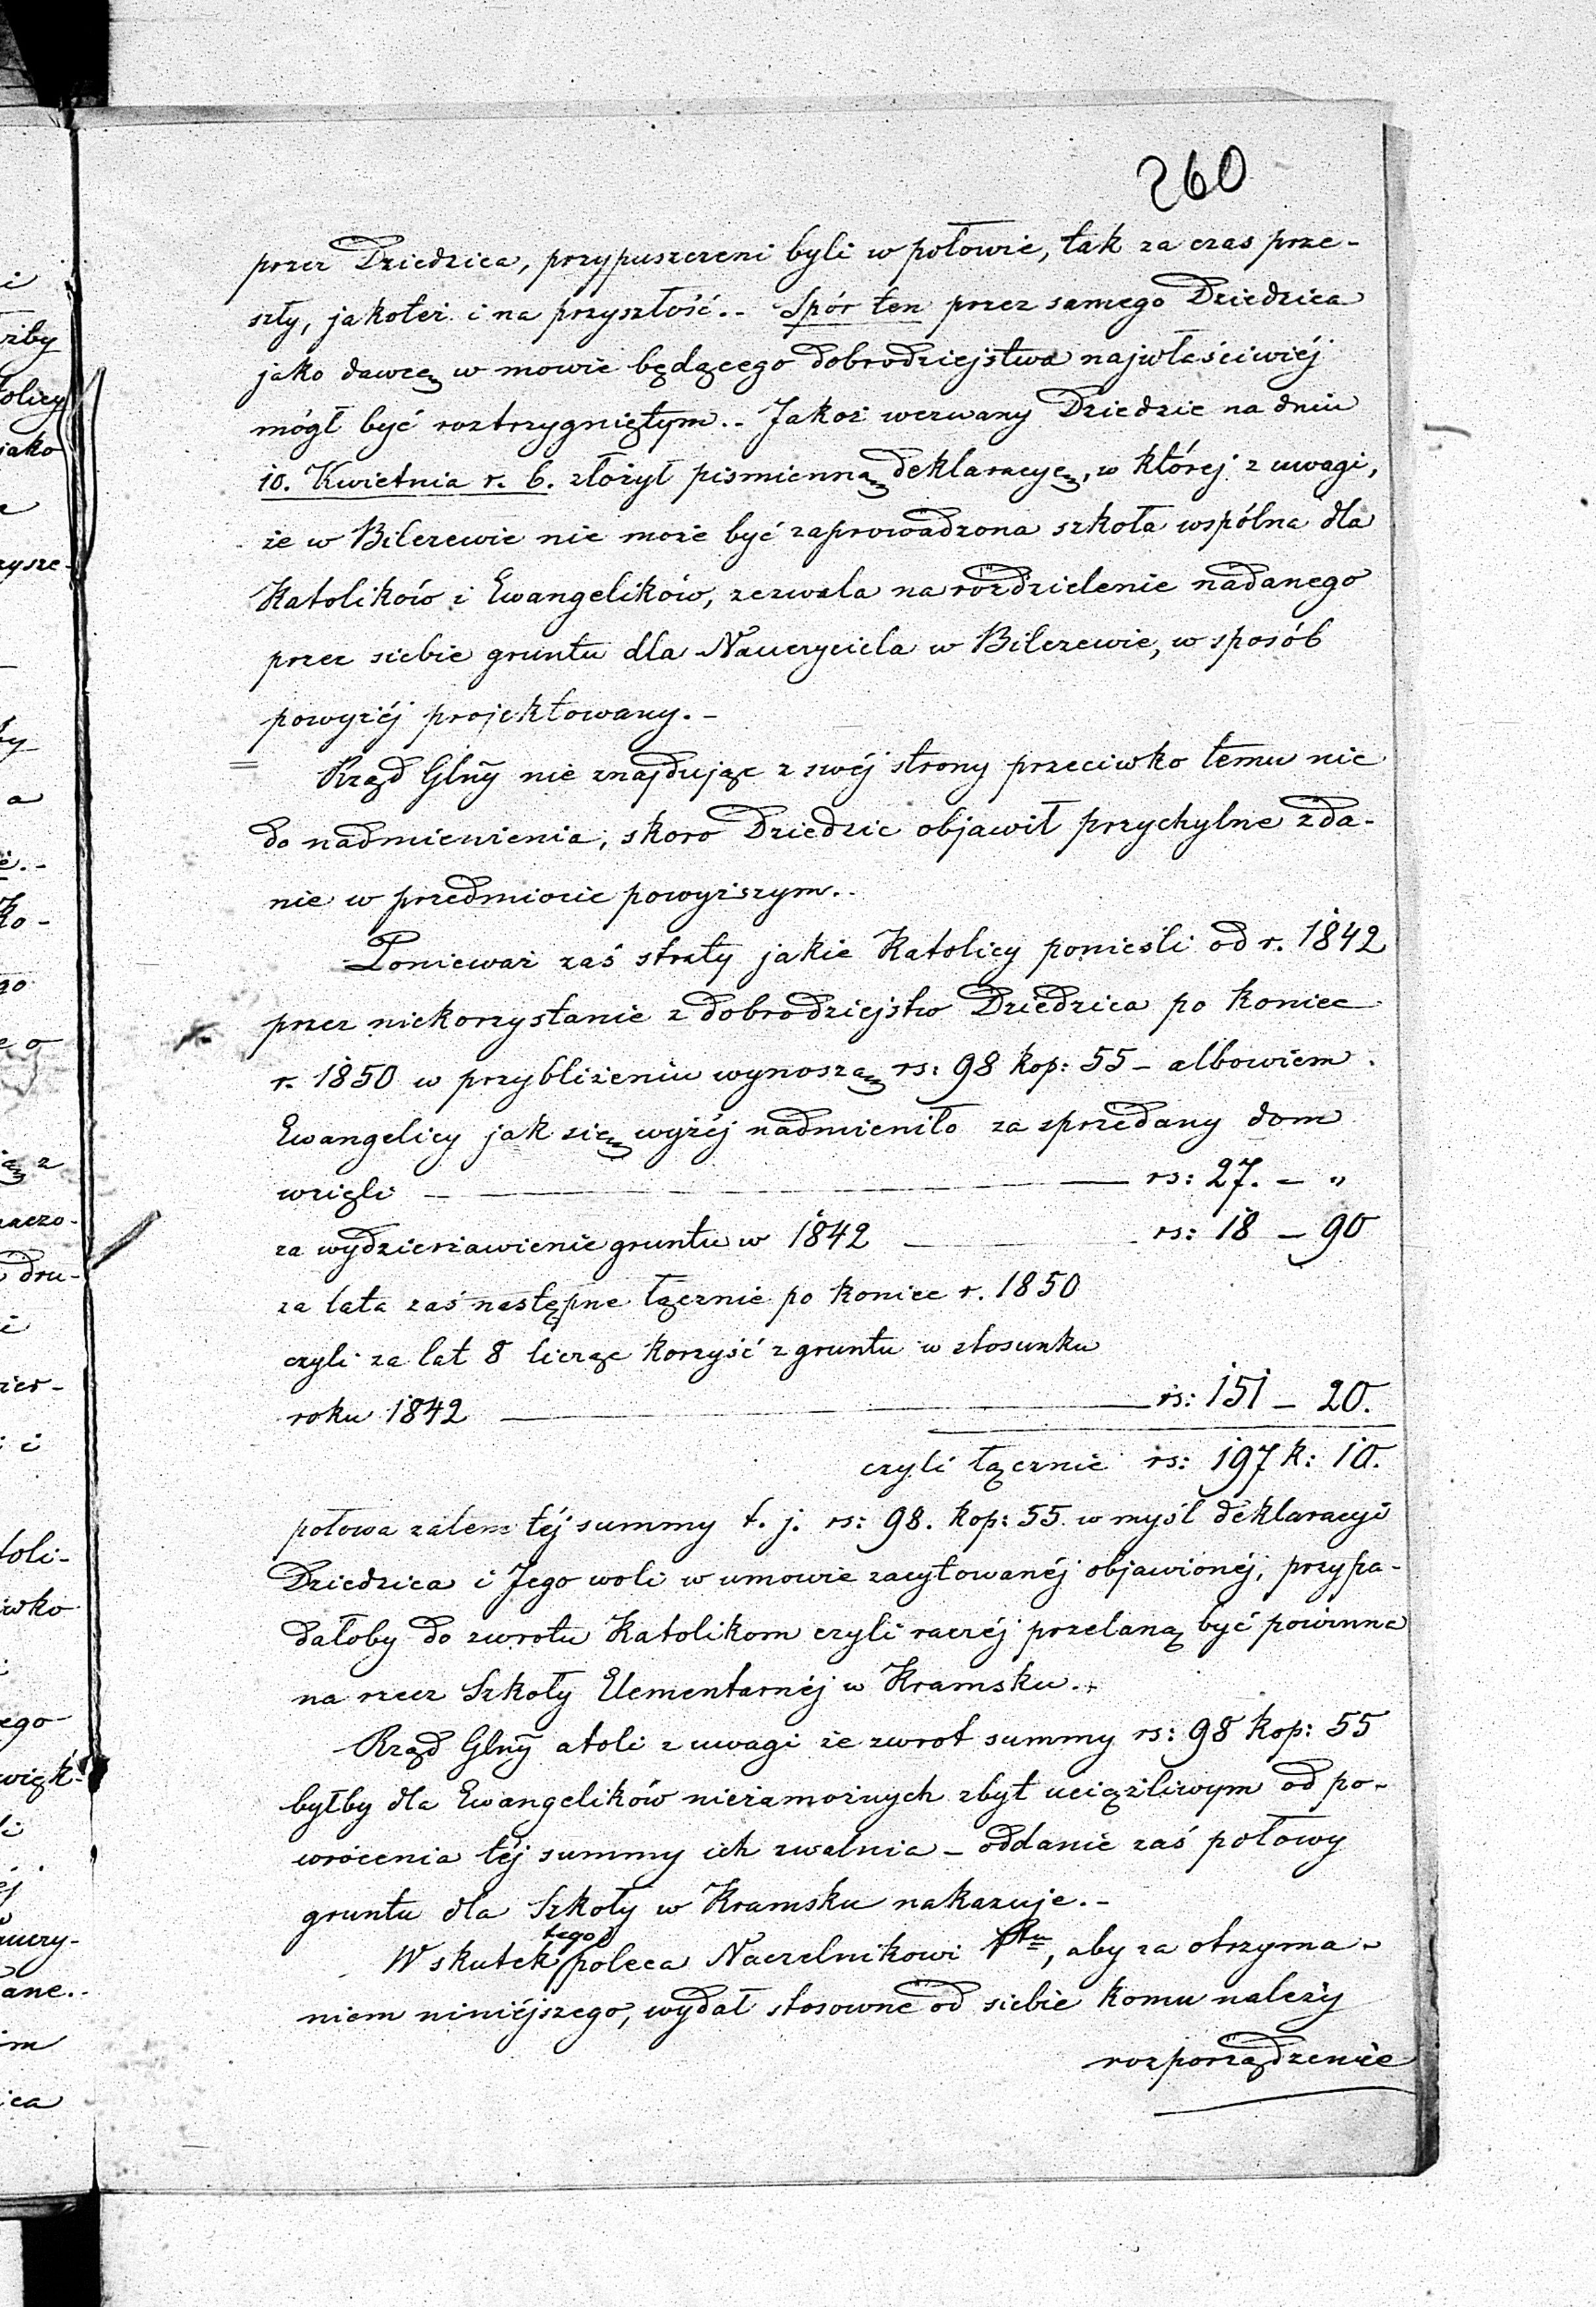 260
przez Dziedzica, przypuszczeni byli w połowie, tak za czas prze-
szły, jakoteż i na przyszłość.- Spór ten przez samego Dziedzica
jako dawcę w mowie będącego dobrodziejstwa najwłaściwiéj
mógł być roztrzygniętym.- Jakoż wezwany Dziedzic na dniu
10. Kwietnia r. b. złożył piśmienną deklaracyę, w której z uwagi,
że w Bilczewie nie może być zaprowadzona szkoła wspólna dla
Katolików i Ewangelików, zezwala na rozdzielenie nadanego
przez siebie gruntu dla Nauczyciela w Bilczewie, w sposób
powyżéj projektowany.-
Rząd Glny nie znajdując z swéj strony przeciwko temu nic
do nadmienienia, skoro Dziedzic objawił przychylne zda-
nie w przedmiocie powyższym.-
Ponieważ zaś straty jakie Katolicy ponieśli od r. 1842
przez niekorzystanie z dobrodziejstw Dziedzica po koniec
r. 1850 w przybliżeniu wynoszą rs: 98 kop: 55 - albowiem
Ewangelicy jak się wyżéj nadmieniło za sprzedany dom
wzięli — rs: 27. - "
za wydzierżawienie gruntu w 1842 — rs: 18 - 90
za lata zaś następne łącznie po koniec r. 1850
czyli za lat 8 licząc korzyść z gruntu w stosunku
roku 1842 — rs: 151 - 20.
czyli łącznie rs: 197 k: 10.
połowa zatem téj summy t. j. rs: 98. kop: 55 w myśl deklaracyi
Dziedzica i Jego woli w umowie zacytowanéj objawionéj, przypa-
dałoby do zwrotu Katolikom czyli raczéj przelaną być powinna
na rzecz Szkoły Elementarnéj w Kramsku.-
Rząd Glny atoli z uwagi że zwrot summy rs: 98 kop: 55
byłby dla Ewangelików niezamożnych zbyt uciążliwym od po-
wrócenia téj summy ich zwalnia - oddanie zaś połowy
gruntu dla Szkoły w Kramsku nakazuje.-
W skutek tego poleca Naczelnikowi Ptu, aby za otrzyma-
niem niniéjszego, wydał stosowne od siebie komu należy
rozporządzenie